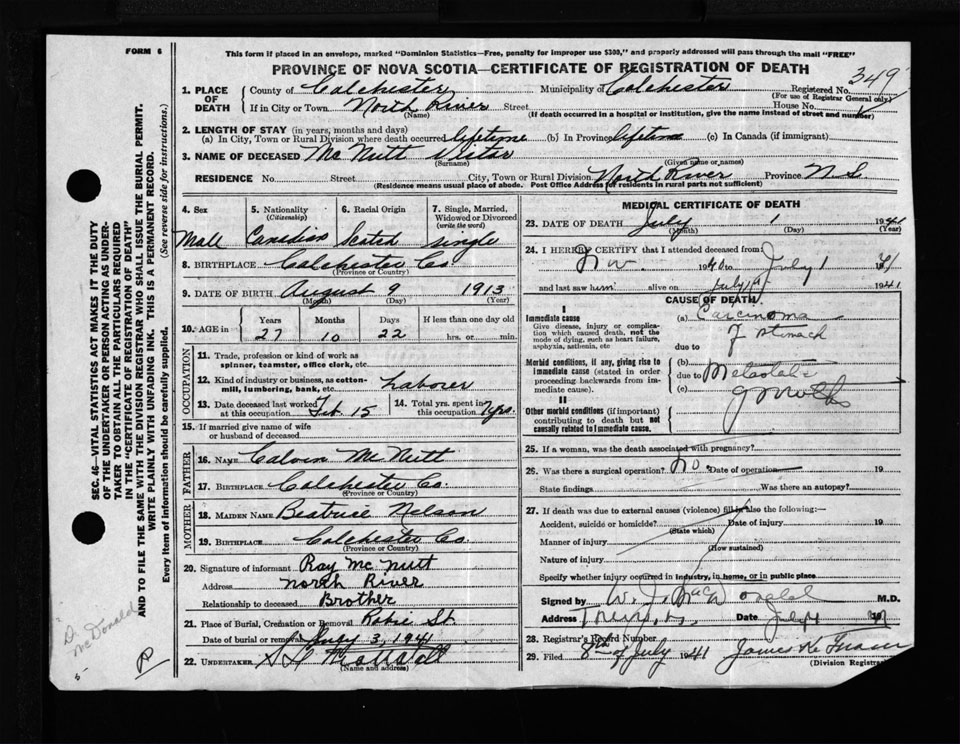 FORM 6
This form if placed in an envelope, marked "Dominion Statistics—Free, penalty for improper use $300," and properly addressed will pass through the mail "FREE"
PROVINCE OF NOVA SCOTIA—CERTIFICATE OF REGISTRATION OF DEATH
349
1. PLACE OF DEATH
County of Colchester Municipality of Colchester Registered No.
(For use of Registrar General only)
If in City or Town North River Street House No.
(Name) (If death occurred in a hospital or institution, give the name instead of street and number)
2. LENGTH OF STAY (in years, months and days)
(a) In City, Town or Rural Division where death occurred lifetime (b) In Province lifetime (c) In Canada (if immigrant)
3. NAME OF DECEASED McNutt Victor
(Surname) (Given name or names)
RESIDENCE No. Street City, Town or Rural Division North River Province N.S.
(Residence means usual place of abode. Post Office Address for residents in rural parts not sufficient)
4. Sex
Male
5. Nationality
(Citizenship)
Canadian
6. Racial Origin
Scotch
7. Single, Married, Widowed or Divorced
(write the word)
single
8. BIRTHPLACE Colchester Co.
(Province or Country)
9. DATE OF BIRTH August 9 1913
(Month) (Day) (Year)
10. AGE in
Years Months Days If less than one day old
27 10 22 hrs. or min.
OCCUPATION
11. Trade, profession or kind of work as spinner, teamster, office clerk, etc.
12. Kind of industry or business, as cotton-mill, lumbering, bank, etc. Laborer
13. Date deceased last worked at this occupation Feb 15
14. Total yrs. spent in this occupation 7 yrs.
15. If married give name of wife or husband of deceased
FATHER
16. NAME Calvin McNutt
17. BIRTHPLACE Colchester Co.
(Province or Country)
MOTHER
18. MAIDEN NAME Beatrice Nelson
19. BIRTHPLACE Colchester Co.
(Province or Country)
20. Signature of informant Roy McNutt
Address North River
Relationship to deceased Brother
21. Place of Burial, Cremation or Removal Robie St.
Date of burial or removal July 3, 1941
22. UNDERTAKER
(Name and address)
MEDICAL CERTIFICATE OF DEATH
23. DATE OF DEATH July 1 1941
(Month) (Day) (Year)
24. I HEREBY CERTIFY that I attended deceased from:
Nov. 1940 to July 1 1941
and last saw him alive on July 1st 1941
CAUSE OF DEATH
I
Immediate cause
Give disease, injury or complication which caused death, not the mode of dying, such as heart failure, asphyxia, asthenia, etc
(a) Carcinoma of stomach
due to
Morbid conditions, if any, giving rise to immediate cause (stated in order proceeding backwards from immediate cause)
(b)
due to Metastatic
(c)
II
Other morbid conditions (if important) contributing to death but not causally related to immediate cause.
25. If a woman, was the death associated with pregnancy?
26. Was there a surgical operation? No. Date of operation 19
State findings Was there an autopsy?
27. If death was due to external causes (violence) fill in also the following:—
Accident, suicide or homicide? Date of injury 19
(State which)
Manner of injury
(How sustained)
Nature of injury
Specify whether injury occurred in industry, in home, or in public place
Signed by M.D.
Address Truro, N.S. Date July 4
28. Registrar's Record Number
29. Filed 8th of July 1941
(Division Registrar)
SEC. 46—VITAL STATISTICS ACT MAKES IT THE DUTY
OF THE UNDERTAKER OR PERSON ACTING AS UNDER-
TAKER TO OBTAIN ALL THE PARTICULARS REQUIRED
IN THE "CERTIFICATE OF REGISTRATION OF DEATH"
AND TO FILE THE SAME WITH THE DIVISION REGISTRAR WHO SHALL ISSUE THE BURIAL PERMIT.
WRITE PLAINLY WITH UNFADING INK. THIS IS A PERMANENT RECORD.
Every item of information should be carefully supplied. (See reverse side for instructions.)
D.
McDonald